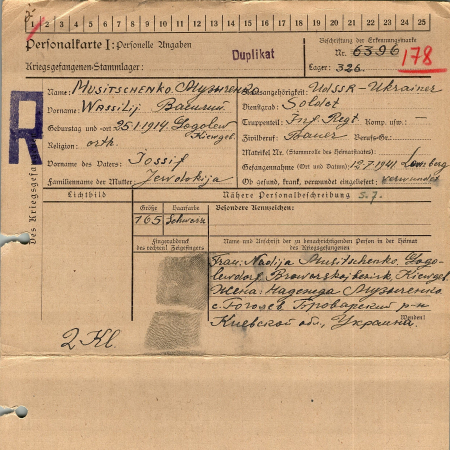 1 2 3 4 5 6 7 8 9 10 11 12 13 14 15 16 17 18 19 20 21 22 23 24 25
Personalkarte I: Personelle Angaben
Kriegsgefangenen-Stammlager:
Duplikat
Beschriftung der Erkennungsmarke
Nr. 6396
178
Lager: 326
R
Des Kriegsgefa
Name: Musitschenko, Музыченко
Vorname: Wassilij Василий
Geburtstag und -ort 25.1.1914. Gogolew
Kiewgeb.
Religion: orth.
Vorname des Vaters: Jossif
Familienname der Mutter: Jewdokija
Staatsangehörigkeit: UdSSR-Ukrainer
Dienstgrad: Soldat
Truppenteil: Inf. Regt Komp. usw.: —
Zivilberuf: Bauer Berufs-Gr.:
Matrikel Nr. (Stammrolle des Heimatstaates):
Gefangennahme (Ort und Datum): 12.7.1941 Lemberg
Ob gesund, krank, verwundet eingeliefert: verwundet
Lichtbild
Nähere Personalbeschreibung
Größe Haarfarbe Besondere Kennzeichen:
165 schwarz
Fingerabdruck
des rechten! Zeigefingers
Name und Anschrift der zu benachrichtigenden Person in der Heimat
des Kriegsgefangenen
Frau: Nadija Musitschenko, Gogo-
lewdorf, Browarskojbezirk Kiewgeb.
Жена: Надежда Музыченко
с. Гоголев Броварский р-н
Киевской обл., Украина.
2 Kl.